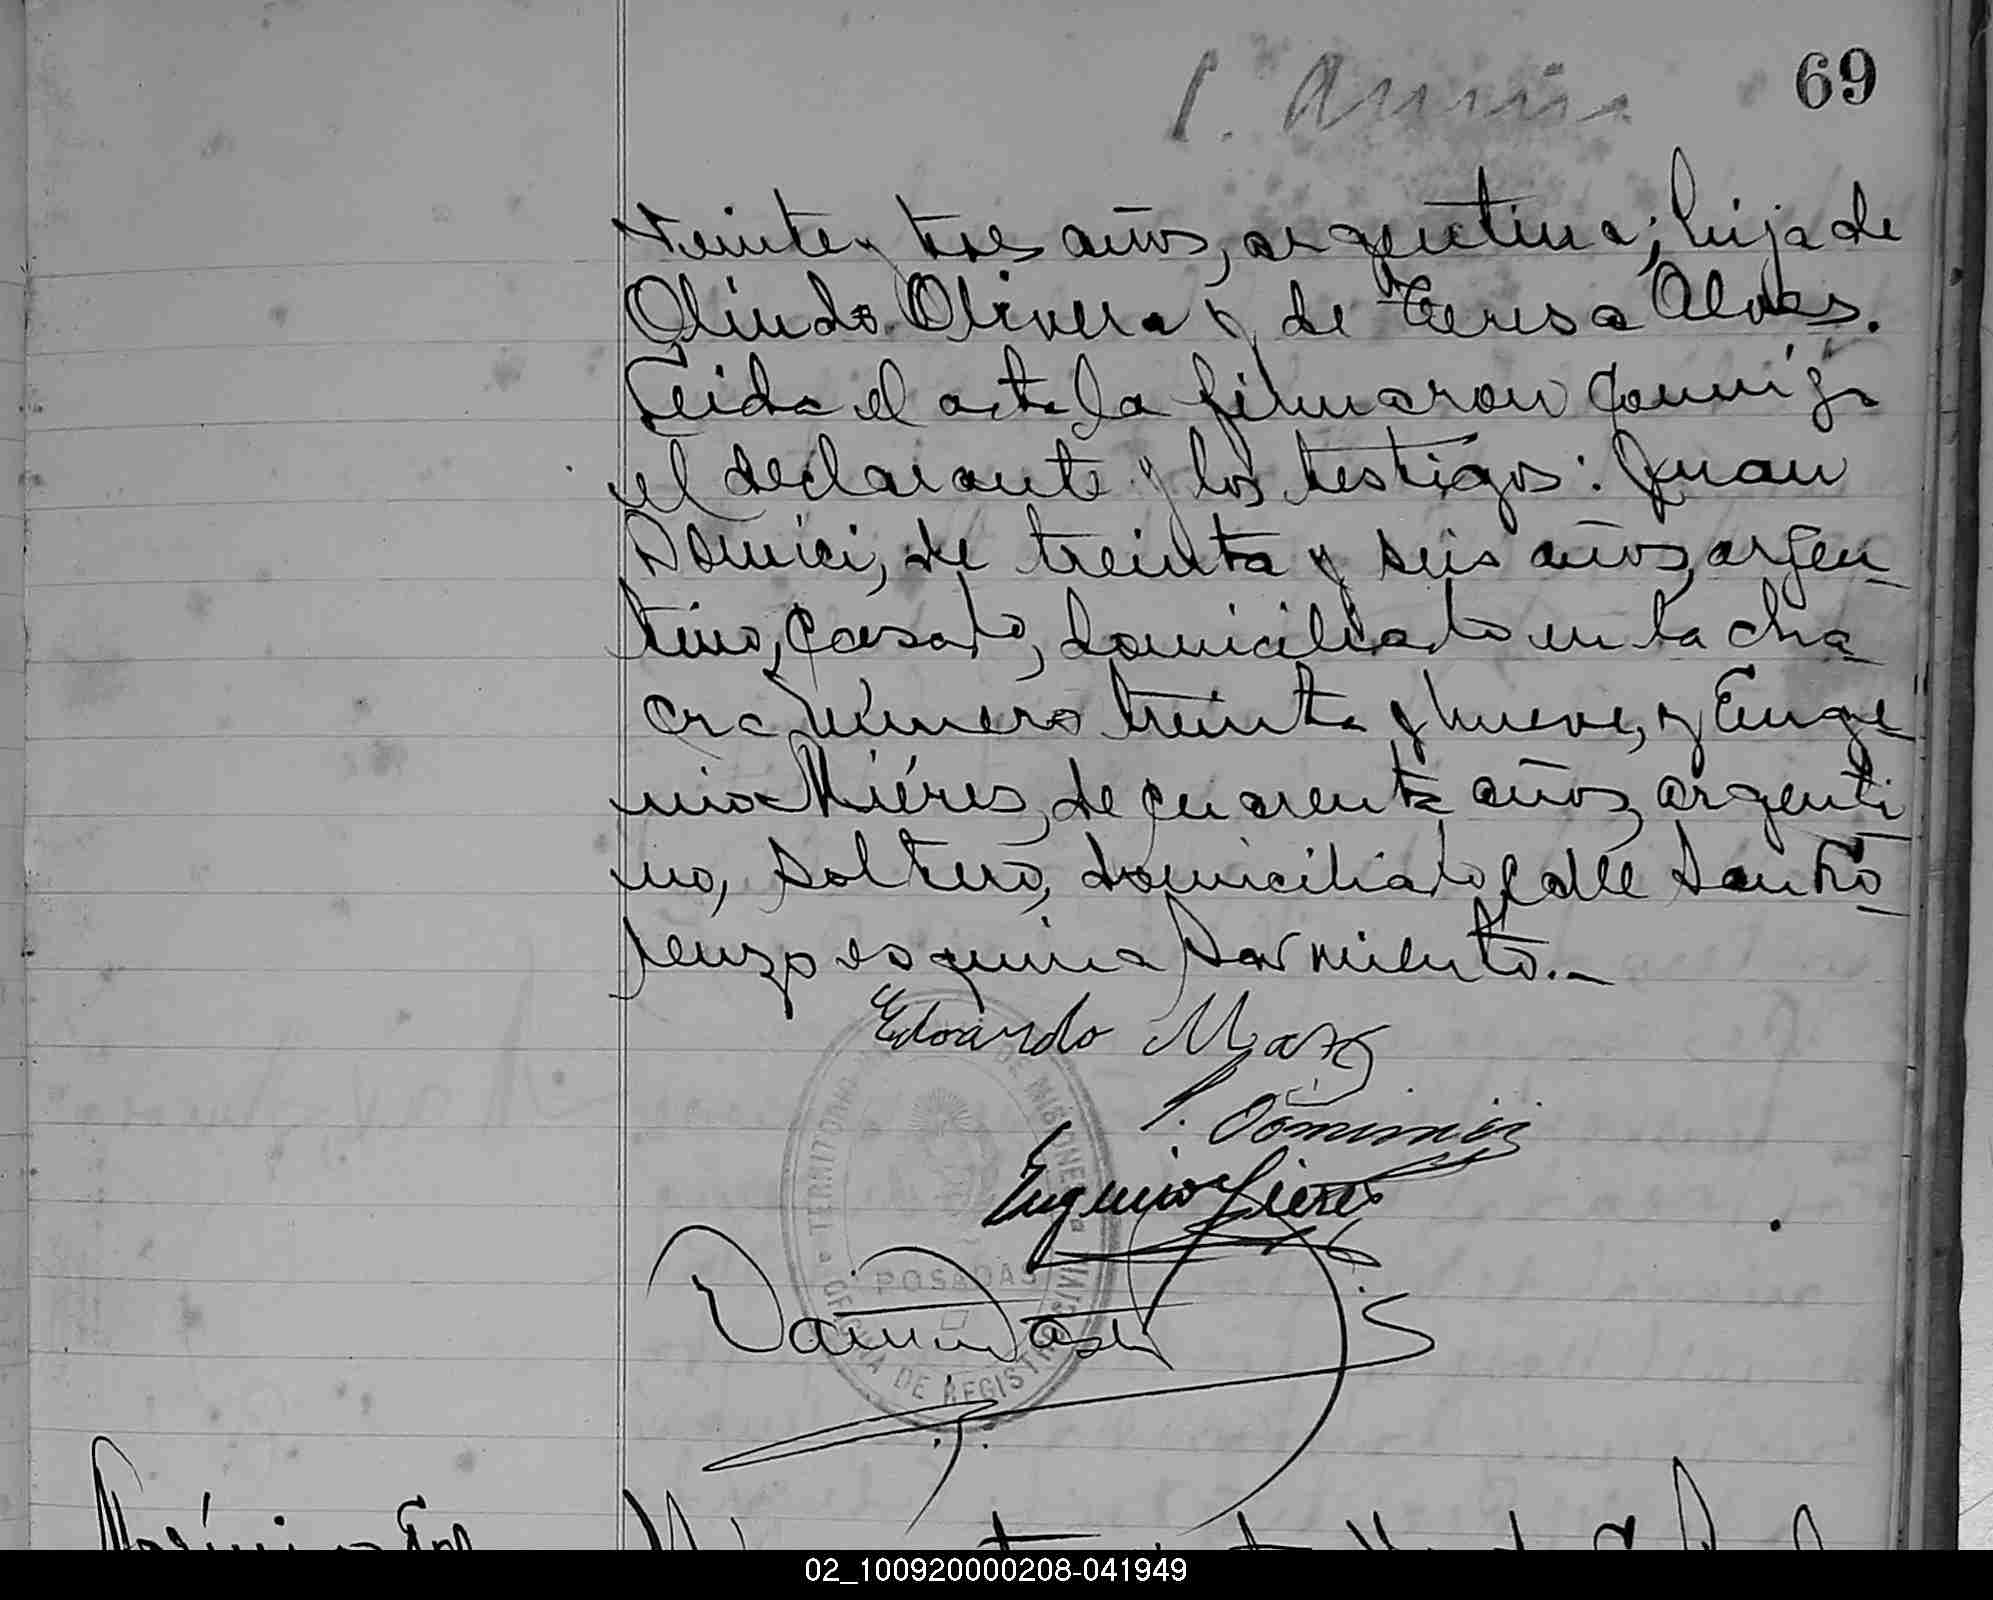 69
veinte y tres años, argentina; hija de
Olindo Olivera y de Teresa Alves.
Leida el acta la firmaron conmigo
el declarante y los testigos: Juan
Domici, de treinta y seis años, argen-
tino, casado, domiciliado en la cha-
cra número treinta y nueve, y Euge-
nio Miéres, de cuarenta años, argenti-
no, soltero, domiciliado calle San Lo-
renzo esquina Sarmiento.-
Edoardo
Eugenio Mieres
TERRITORIO DE MISIONES
POSADAS
OFICINA DE REGISTRO CIVIL
02_100920000208-041949